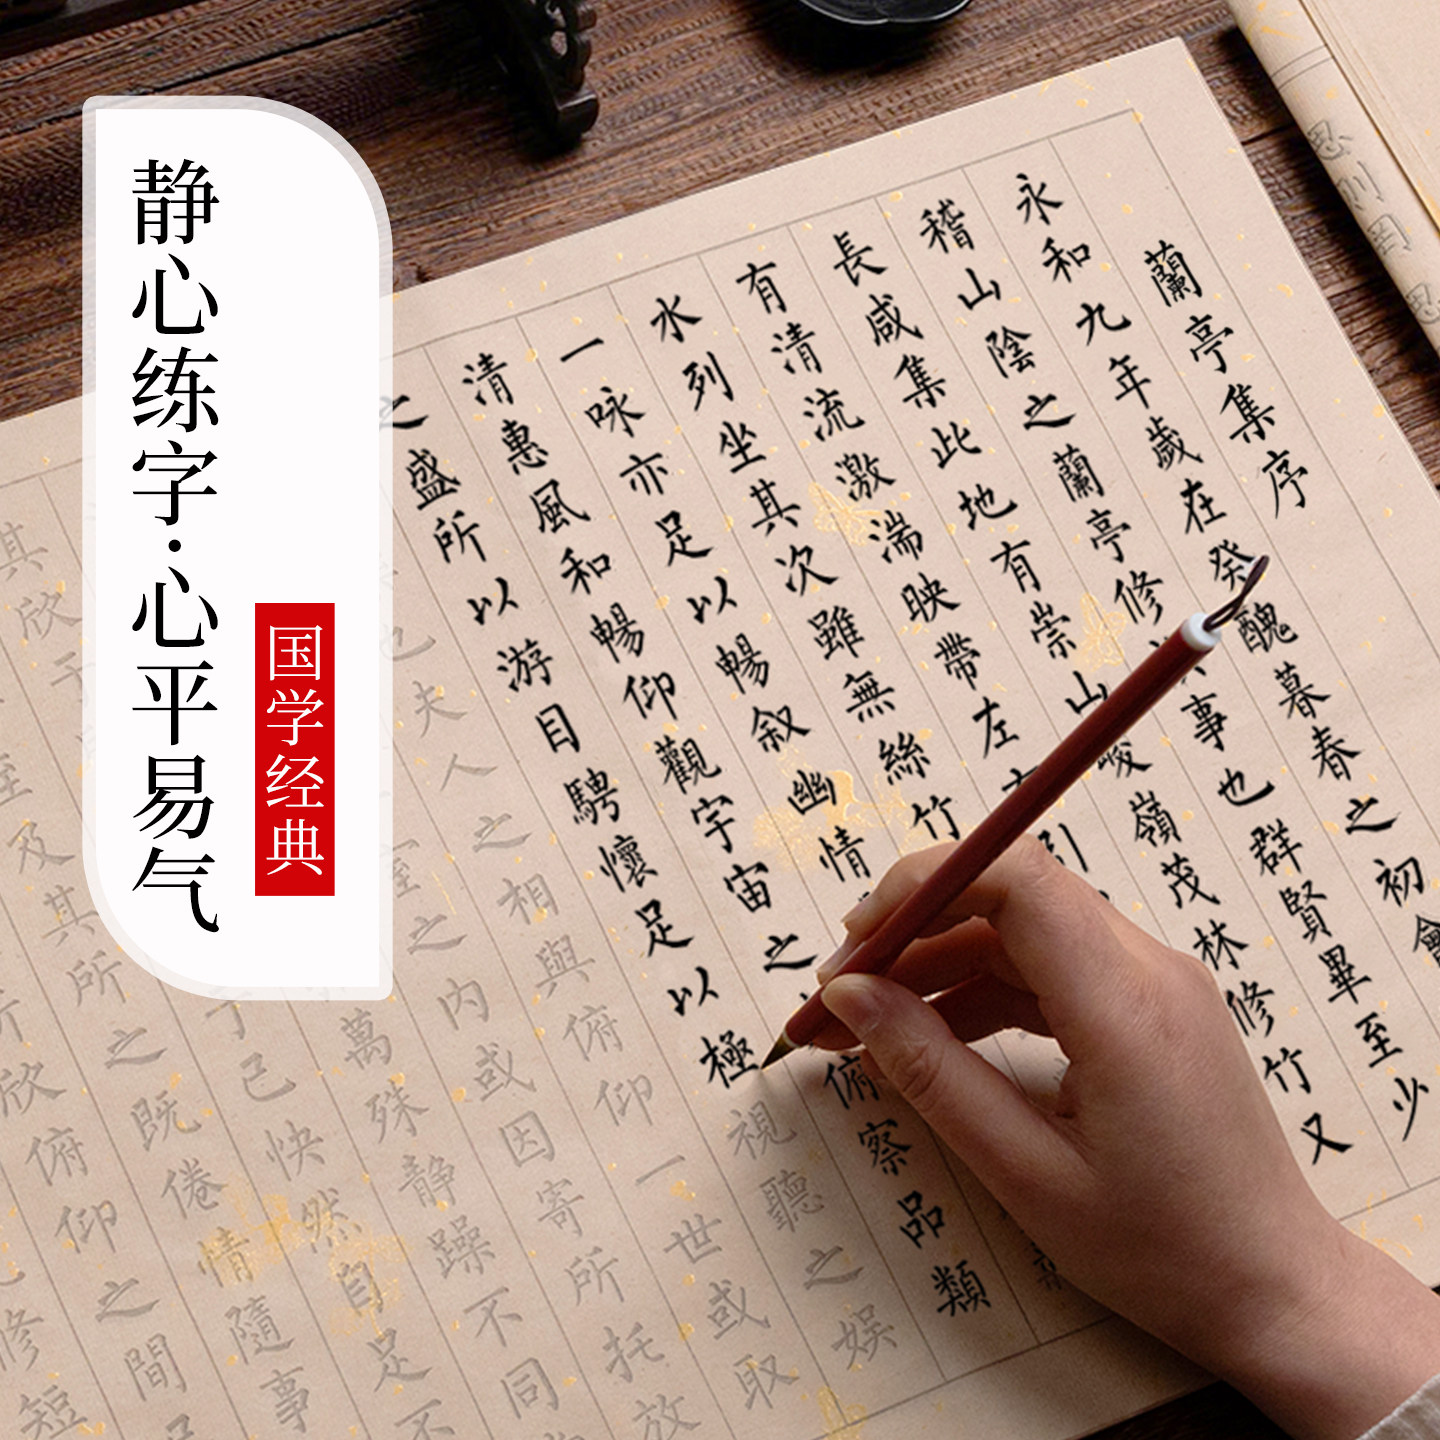 静心练字·心平易气
国学经典
蘭亭集序
永和九年歲在癸醜暮春之初會
稽山陰之蘭亭修事也群賢畢至少
長咸集此地有崇山峻嶺茂林修竹又
有清流激湍映帶左引
水列坐其次雖無絲竹
一咏亦足以暢叙幽情
清惠風和暢仰觀宇宙之俯察品類
之盛所以游目騁懷足以極視聽之娱
也夫人之相與俯仰一世或取
室之内或因寄所托放
萬殊静躁不同
其欣于于己快然自足不
至及其所之既倦情隨事
所欣俯仰之間
修短